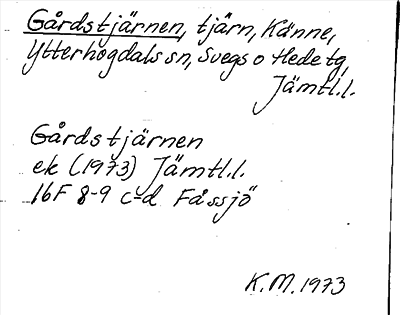 Gårdstjärnen, tjärn, Känne,
Ytterhogdals sn, Svegs o Hede tg,
Jämtl.l.
Gårdstjärnen
ek (1973) Jämtl.l.
16F 8-9 c-d Fåssjö
K.M. 1973